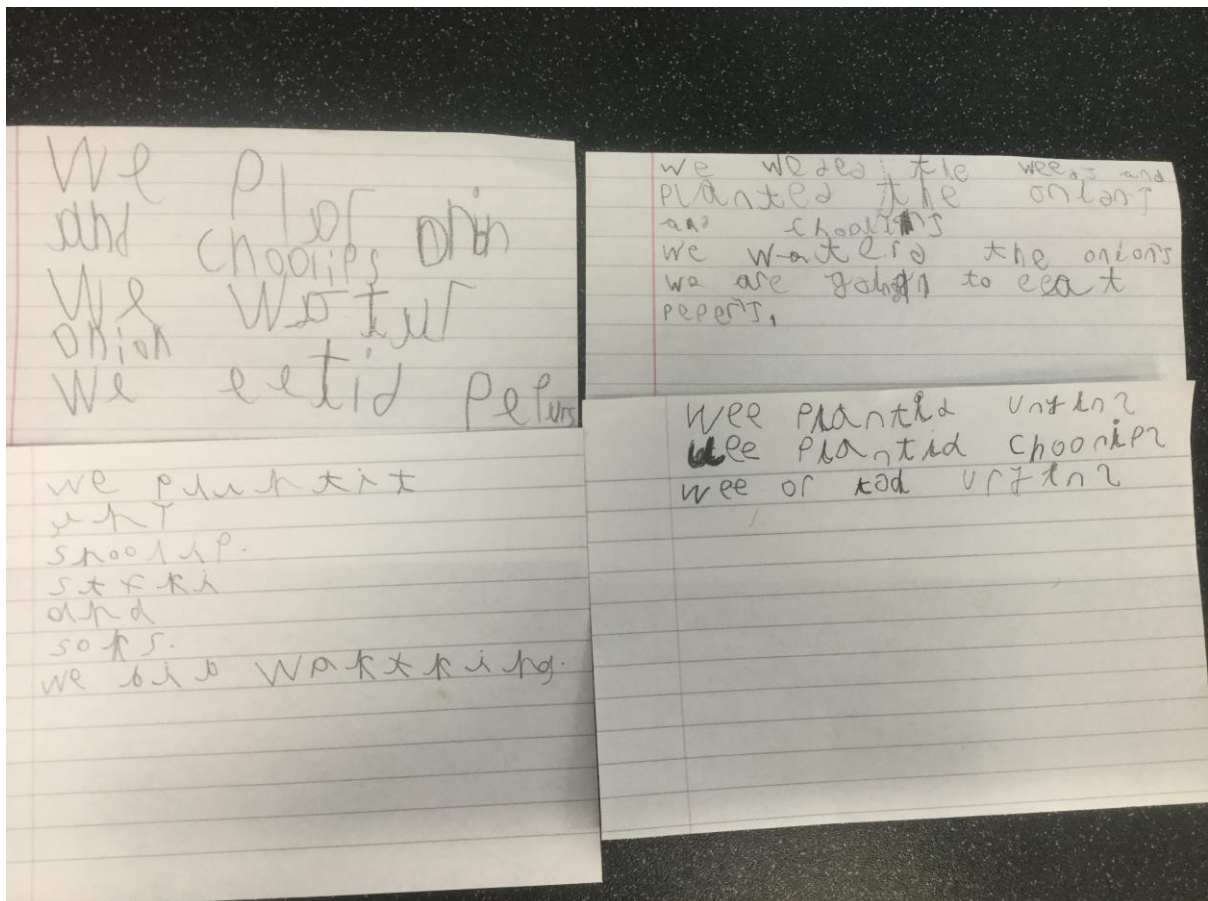 We Plof
and choolips onion
We Wotur
onion
We eetid Pepurs
we weded the weeds and
planted the onions
and choolins
we waterd the onions
we are going to eeat
pepers.
we pluntit
shoolip.
and
soks.
we bib
Wee Plantid unyinz
Wee Plantid Choolipz
wee or tod unyinz